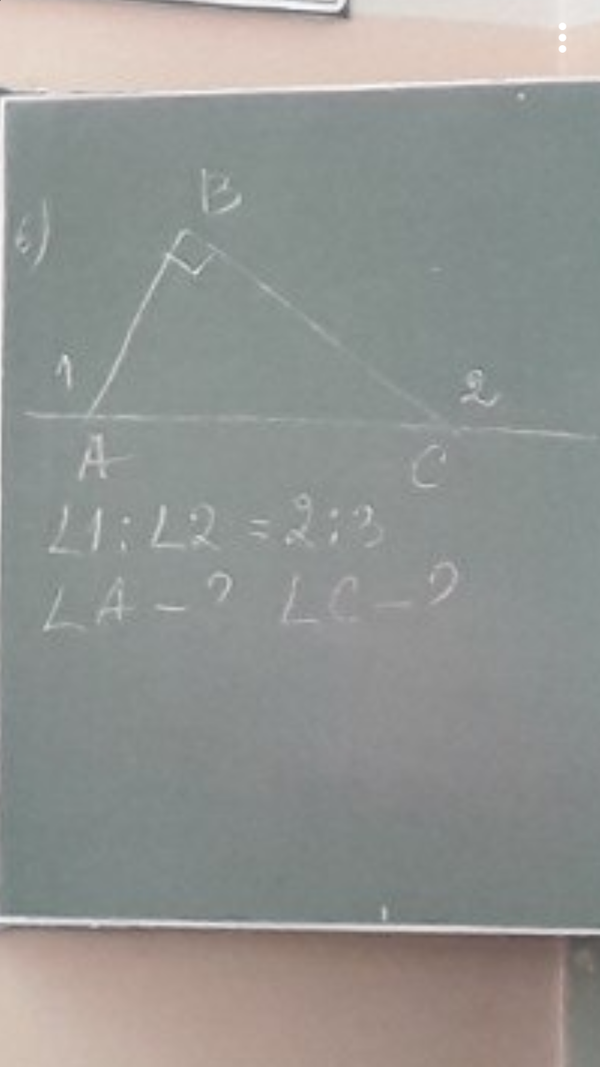 в)
B
1
2
A
C
∠1 : ∠2 = 2 : 3
∠A - ? ∠C - ?